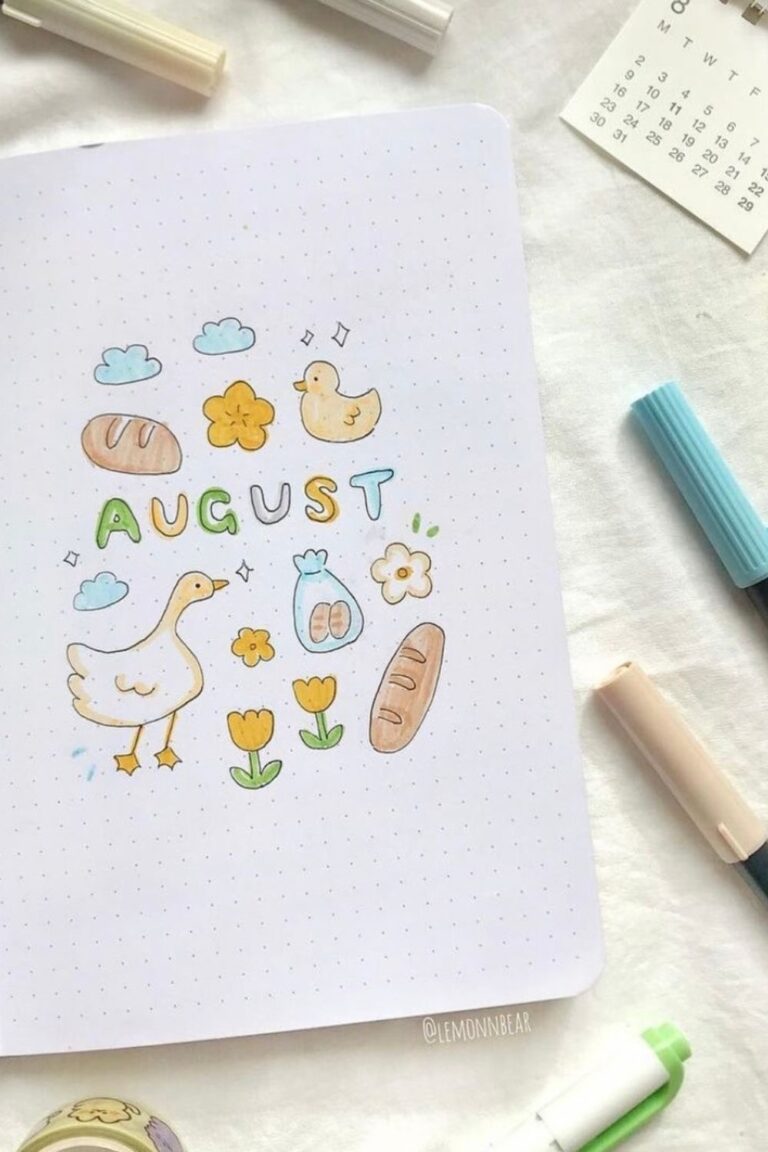 8
M T W T F
2 3 4 5 6 7
9 10 11 12 13 14
16 17 18 19 20 21 22
23 24 25 26 27 28 29
30 31
AUGUST
@LEMONNBEAR